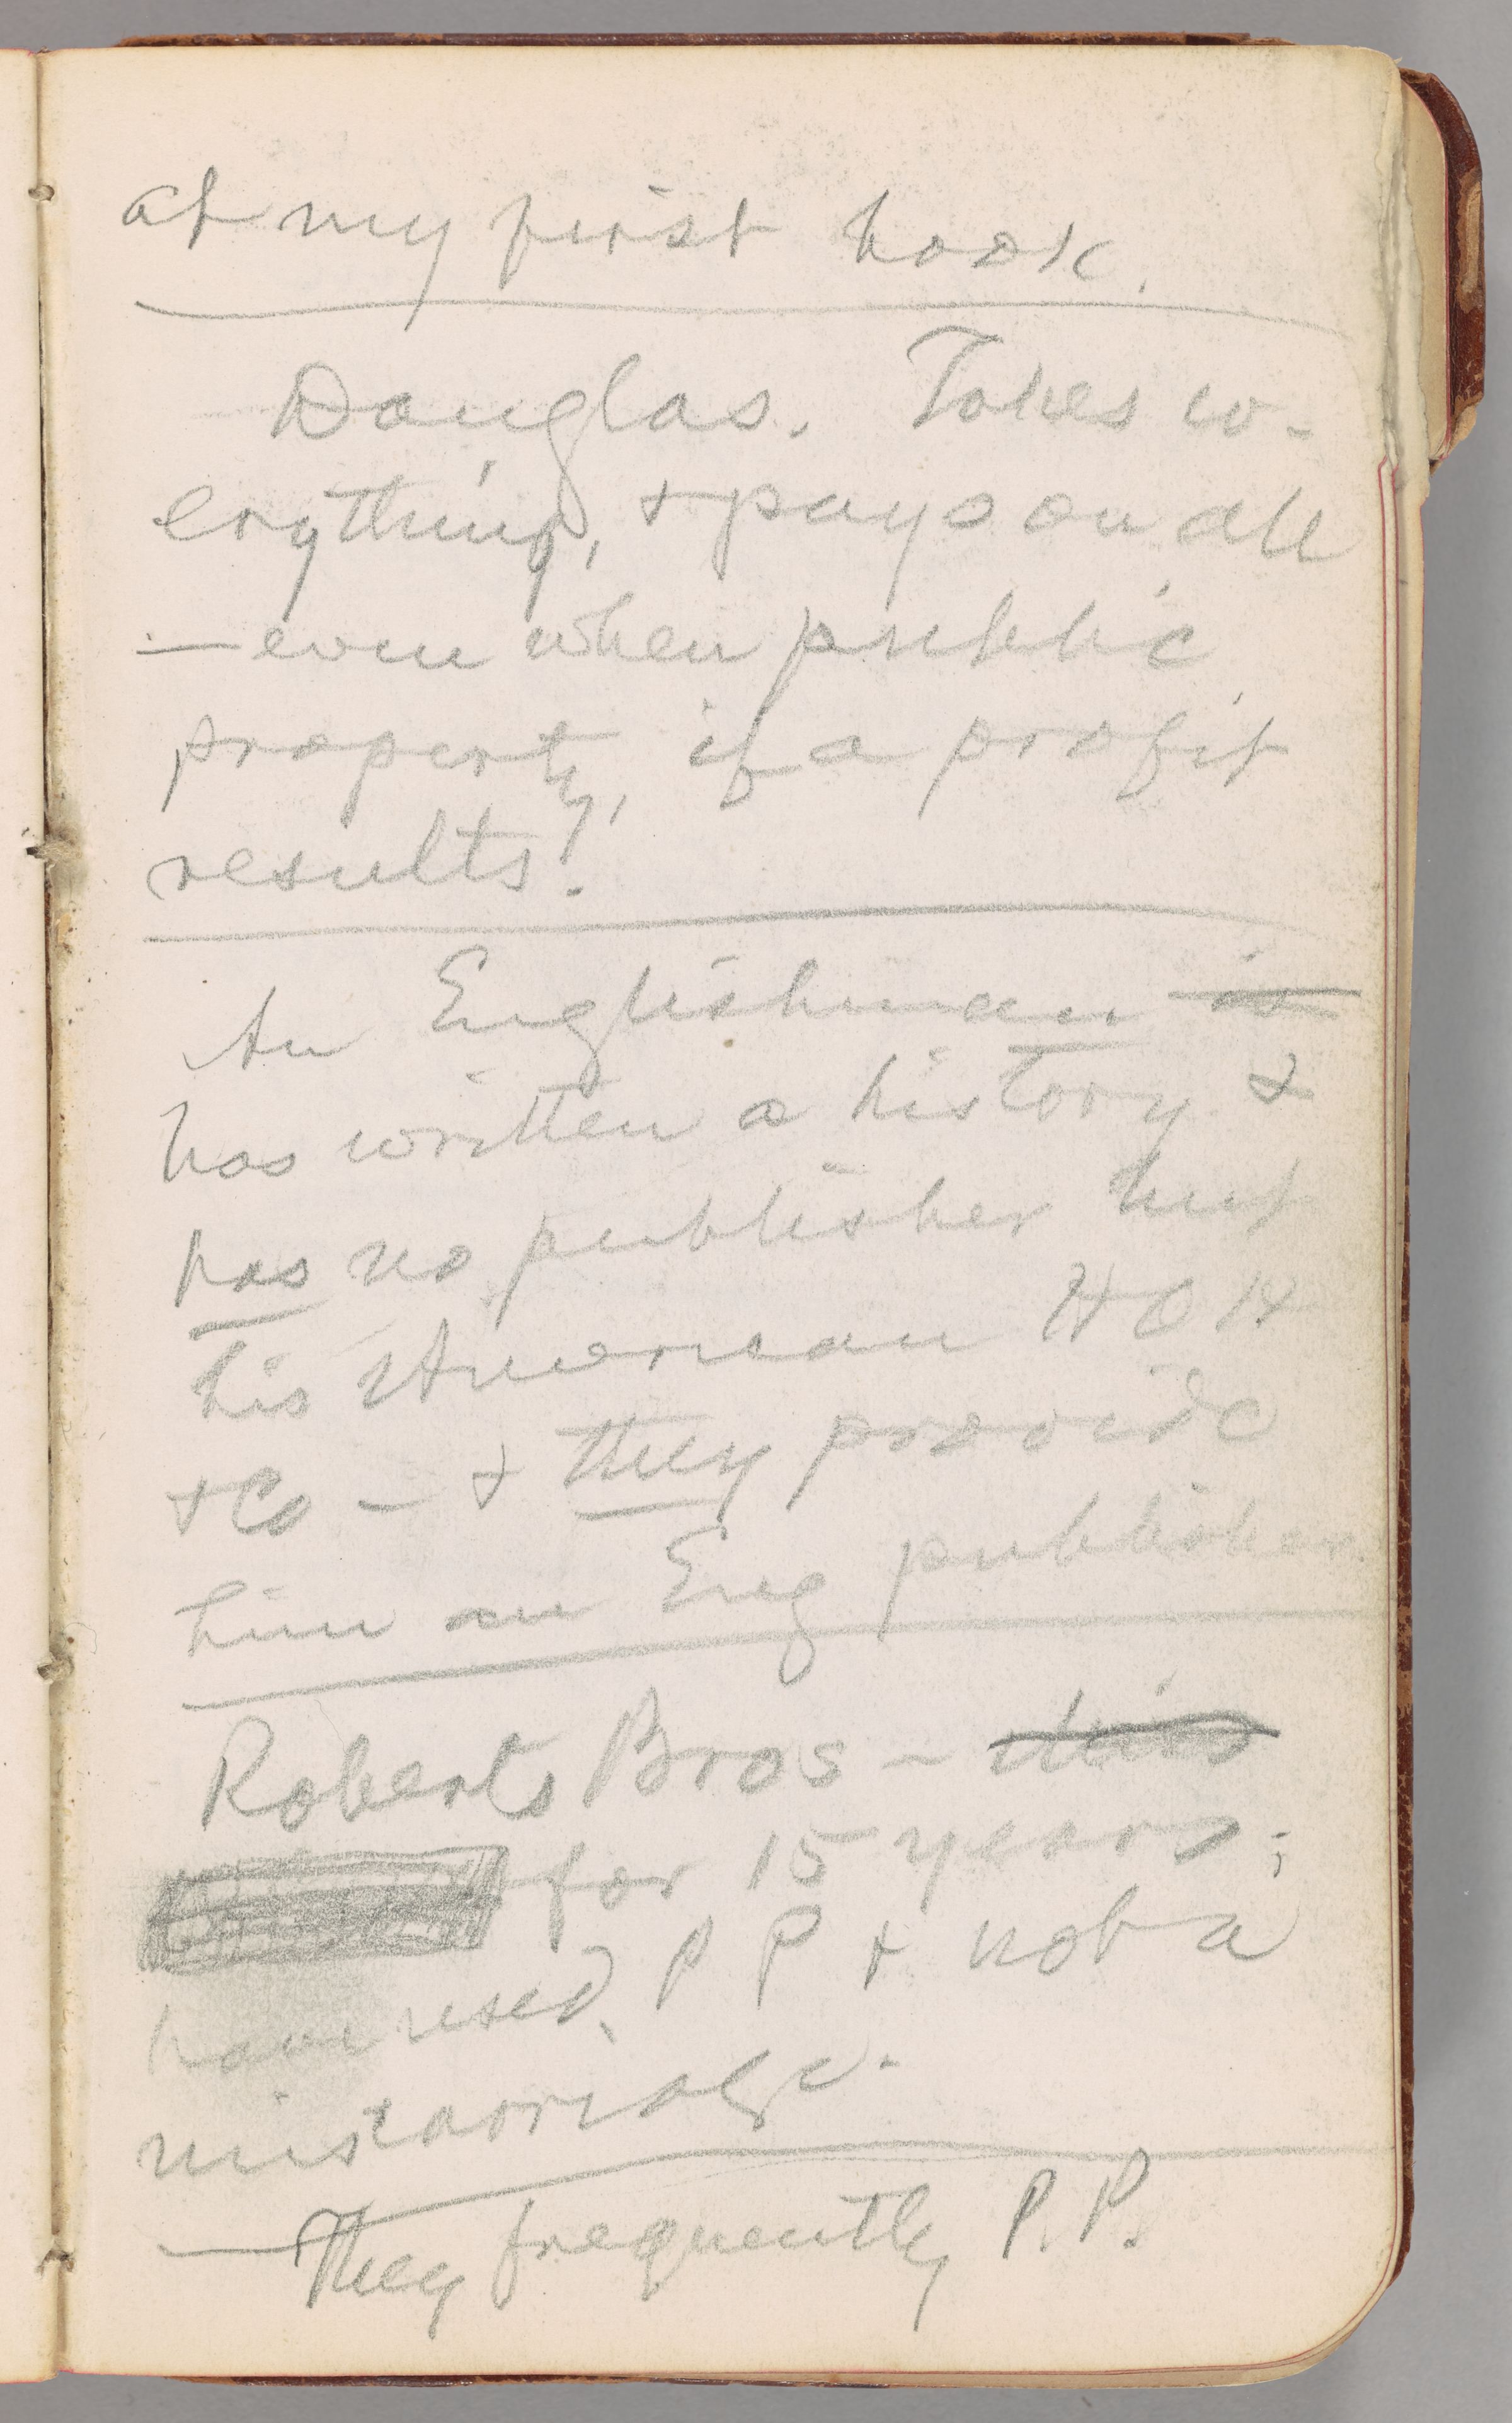 at my first book.
Douglas. Takes ev-
erything, & pays on all
— even when public
property, if a profit
results.
An Englishman is
has written a history &
has no publisher but
his American H O H
& Co — & they provide
him an Eng publisher
Roberts Bros —
for 15 years;
have used P P & not a
miscarriage.
— They frequently P. P.